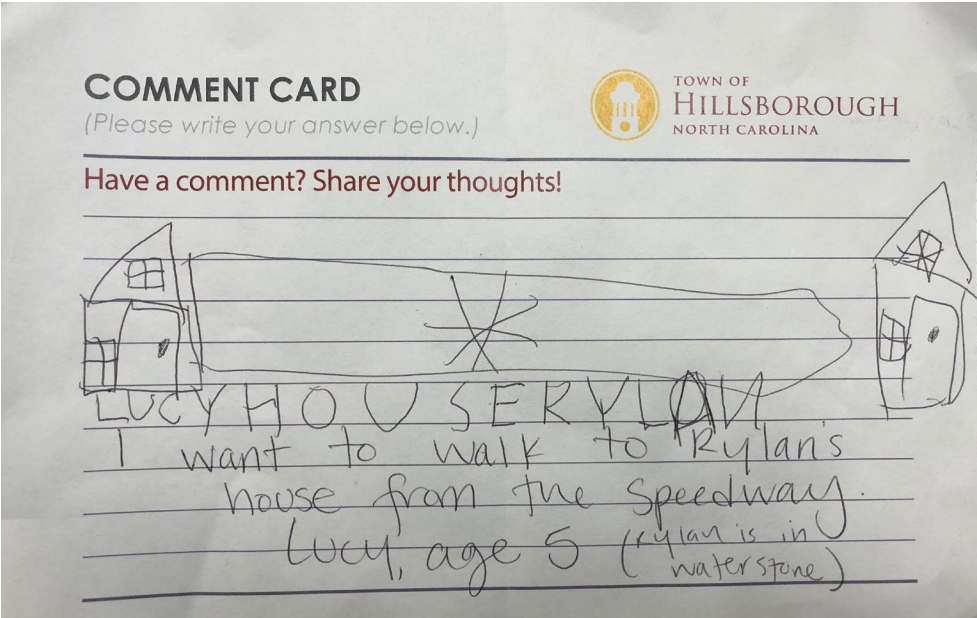 COMMENT CARD
(Please write your answer below.)
TOWN OF
HILLSBOROUGH
NORTH CAROLINA
Have a comment? Share your thoughts!
LUCYHOUSERYLAN
I want to walk to Rylan's
house from the Speedway.
Lucy, age 5 (Rylan is in
waterstone)